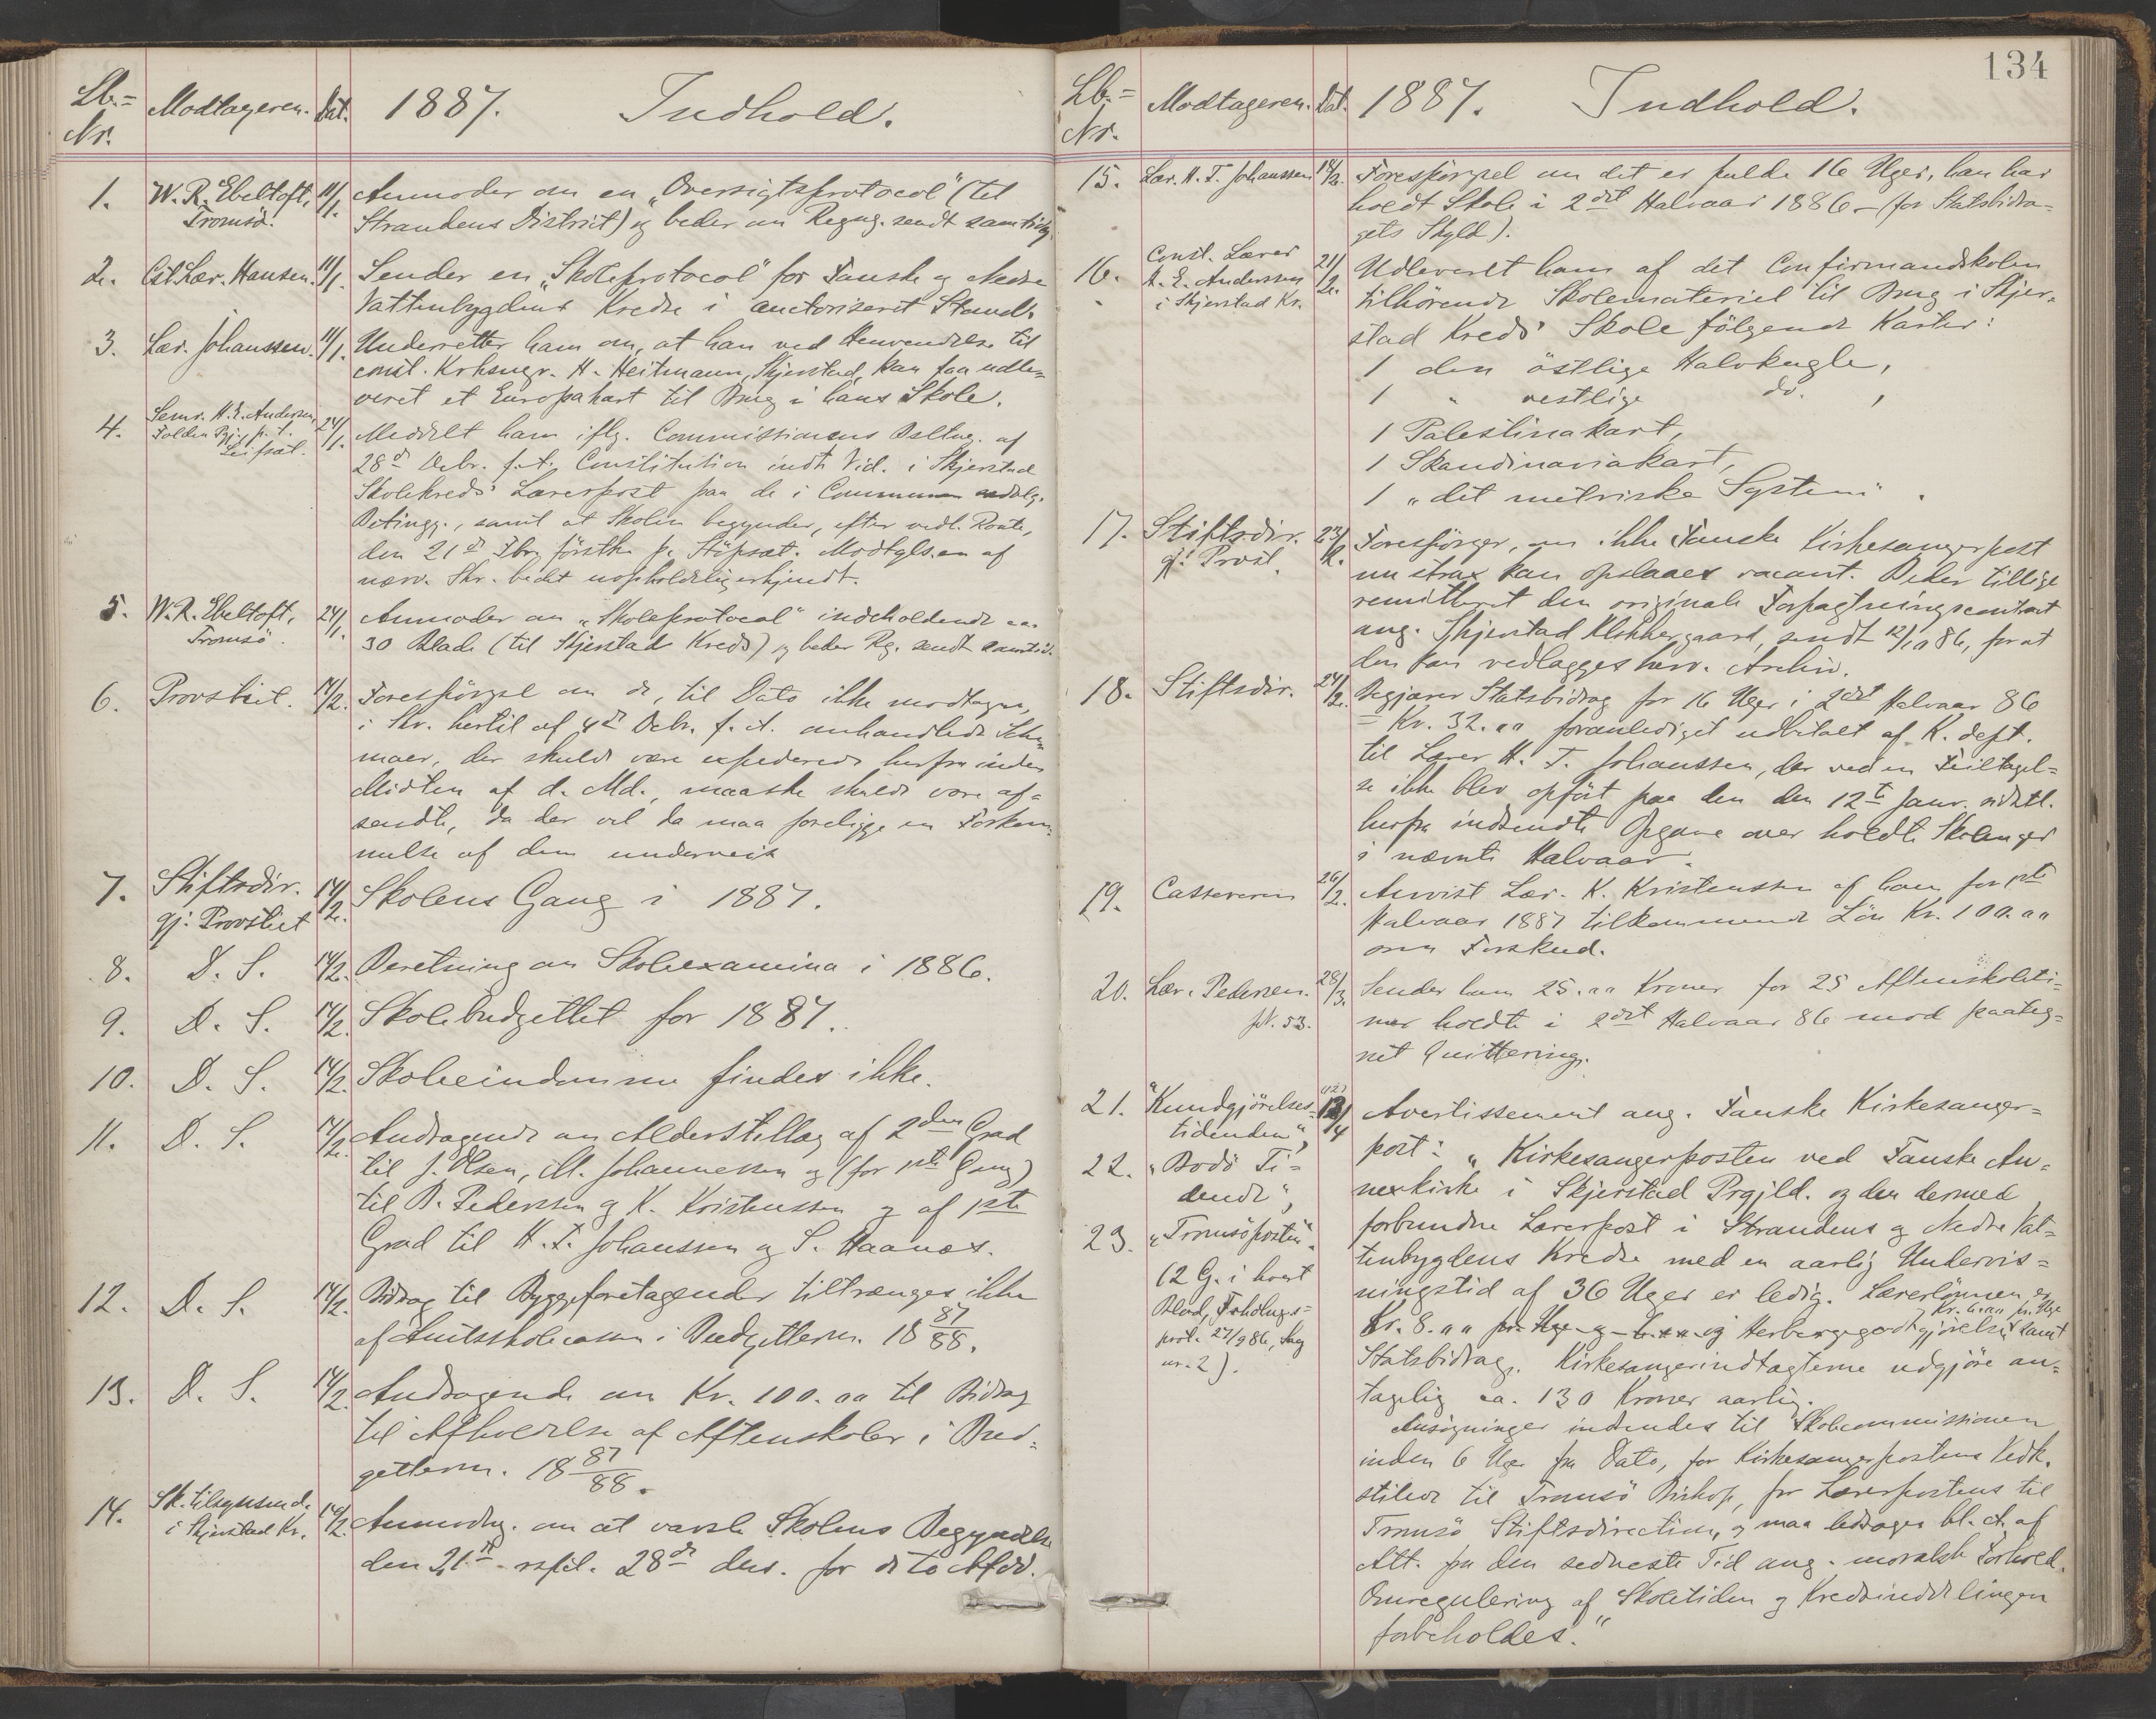 Lb.=
Nr.
Modtageren.
Dat.
1887. Indhold.
1. W. R. Ebeltoft, Tromsö. 11/1. Anmoder om en „Oversigtsprotocol" (til
Strandens District) og beder om Regng. sendt samtidig.
2. Cst. Lær. Hansen. 11/1. Sender en „Skoleprotocol" for Fauske og Nedre
Vattenbygdens Kredse i auctoriseret Stand.
3. Lær. Johanssen. 11/1. Underretter ham om, at han ved Henvendelse til
const. Krksngr. H. Heitmann, Skjerstad, kan faa udle=
veret et Europakart til Brug i hans Skole.
4. Semr. H. E. Andersen, Folden Pgj., p. t. Leifset. 24/1. Meddelt ham iflg. Commissionens Beslng. af
28de Decbr. f. A. Constitution indt. Vid. i Skjerstad
Skolekreds' Lærerpost paa de i Communen
Betingg., samt at Skolen begynder, efter vedt. Route,
den 21de Fbr. förstk. p. Stöpset. Modtgls.en af
nærv. Skr. bedst uopholdelig erkjendt.
5. W. R. Ebeltoft, Tromsö. 24/1. Anmoder om „Skoleprotocol" indeholdende ca.
30 Blade (til Skjerstad Kreds) og beder Rg. sendt samtid.
6. Provstiet. 14/2. Forespörgsel om de, til Dato ikke modtagne,
i Skr. hertil af 4de Decbr. f. A. omhandlede Sche=
maer, der skulde være expederede herfra inden
Midten af d. Md., maaske skulde være af=
sendte, da der vel da maa foreligge en Forkom=
melse af dem underveis
7. Stiftsdir. gj: Provstiet 14/2. Skolens Gang i 1887.
8. D. S. 14/2. Beretning om Skoleexamina i 1886.
9. D. S. 14/2. Skolebudgettet for 1887.
10. D. S. 14/2. Skoleeindomme findes ikke.
11. D. S. 14/2. Andragende om Alderstillæg af 2den Grad
til J. Olsen, M. Johannessen og (for 1ste Gang)
til B. Pedersen og K. Kristenssen og af 1ste
Grad til H. T. Johanssen og S. Haanæs.
12. D. S. 14/2. Bidrag til Byggeforetagender tiltrænges ikke
af Amtsskolecassen i Budgetterm. 18 87/88.
13. D. S. 14/2. Andragende om Kr. 100.00 til Bidrag
til Afholdelse af Aftenskoler i Bud=
getterm. 18 87/88.
14. Sk. tilsynsmd. i Skjerstad Kr. 14/2. Anmodng. om at varsle Skolens Begyndelse
den 21de respl. 28de ds. for de to Afdd.
134
Lb.=
Nr.
Modtageren.
Dat.
1887. Indhold.
15. Lær. H. T. Johanssen 18/2. Forespörgsel om det er fulde 16 Uger, han har
holdt Skole i 2det Halvaar 1886 – (for Statsbidra=
gets Skyld).
16. Const. Lærer H. E. Anderssen i Skjerstad Kr. 21/2. Udleveret ham af det Confirmandskolen
tilhörende Skolemateriel til Brug i Skjer=
stad Kreds' Skole fölgende Karter:
1 den östlige Halvkugle,
1 " vestlige do. ,
1 Palestinakart,
1 Skandinaviakart,
1 „det metriske System".
17. Stiftsdir. gj: Provst. 23/2. Forespörger, om ikke Fauske Kirkesangerpost
nu strax kan opslaaes vacant. Beder tillige
remitteret den originale Forpagtningscontract
ang. Skjerstad Klokkergaard, sendt 12/10 86, for at
den kan vedlægges herv. Archiv.
18. Stiftsdir. 24/2. Begjærer Statsbidrag for 16 Uger i 2det Halvaar 86
= Kr. 32.00 foranlediget udbetalt af K. dept.
til Lærer H. T. Johanssen, der ved en Feiltagel=
se ikke blev opfört paa den den 12te Janr. sidstl.
herfra indsendte Opgave over holdte Skoleuger
i nævnte Halvaar.
19. Cassereren 26/2. Anvist Lær. K. Kristenssen af ham for 1ste
Halvaar 1887 tilkommende Lön Kr. 100.00
som Forskud.
20. Lær. Pedersen. 28/3. Sender ham 25.00 Kroner for 25 Aftenskoleti=
mer holdte i 2det Halvaar 86 mod paateg=
net Quittering.
21. „Kundgjörelses=
tidenden",
22. „Bodö Ti=
dende",
23. „Tromsöposten".
(2 G. i hvert
Blad, Frhdlngs=
prot. 27/9 86, Sag
nr. 2).
Avertissement ang. Fauske Kirkesanger=
post: „Kirkesangerposten ved Fauske An=
nexkirke i Skjerstad Prgjld. og den dermed
forbundne Lærerpost i Strandens og Nedre Vat=
tenbygdens Kredse med en aarlig Undervis=
ningstid af 36 Uger er ledig. Lærerlönnen er
Kr. 8.00 pr. Uge og Herberggegodtgjörelse Kr. 6.00 pr. Uge samt
Statsbidrag. Kirkesangerindtægterne udgjöre an=
tagelig ca. 130 Kroner aarlig.
Ansögninger indsendes til Skolecommissionen
inden 6 Uger fra Dato, for Kirkesangerpostens Vedk.
stilede til Tromsö Biskop, for Lærerpostens til
Tromsö Stiftsdirection, og maa ledsages bl. A. af
Att. fra den sedneste Tid ang. moralsk Forhold.
Omregulering af Skoletiden og Kredsinddelingen
forbeholdes."